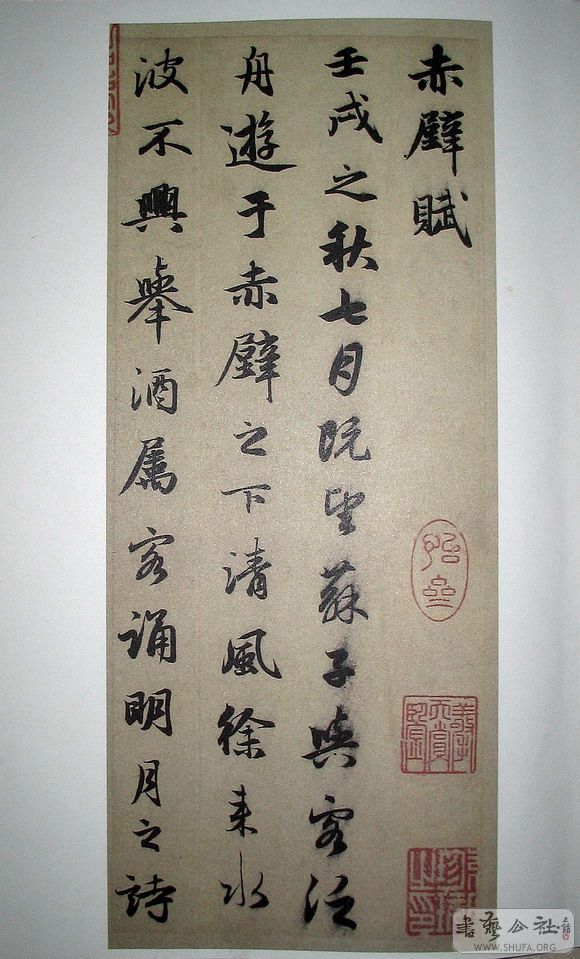 赤壁賦
壬戌之秋七月既望蘇子與客泛
舟遊于赤壁之下清風徐来水
波不興舉酒属客誦明月之詩
書藝公社
WWW.SHUFA.ORG